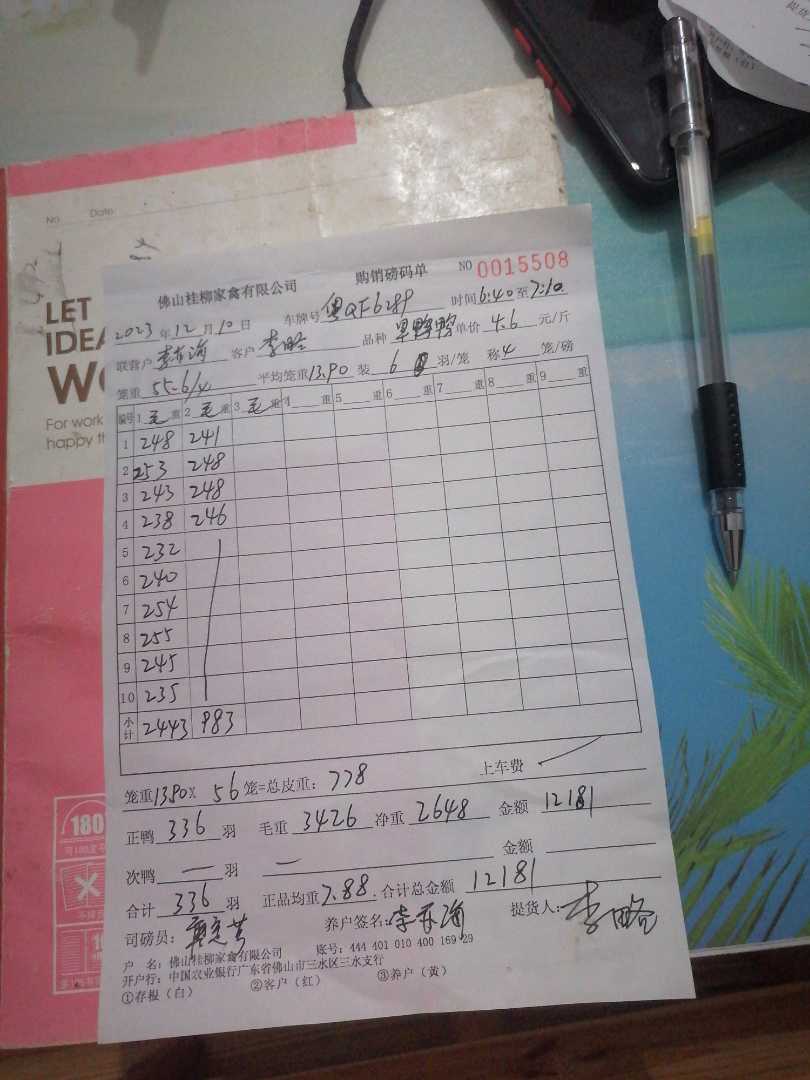 No. Date
LET
IDEA
W
For work
happy th
180°
佛山桂柳家禽有限公司 购销磅码单 NO 0015508
2023年12月10日 车牌号粤QF6289 时间6:40至7:10
联营户 李亦海 客户 李略 品种 单价4.6元/斤
笼重55.6/4 平均笼重13.90 装6羽/笼 称4笼/磅
编号 1毛重 2毛重 3毛重 4重 5重 6重 7重 8重 9重
1 248 241
2 253 248
3 243 248
4 238 246
5 232
6 240
7 254
8 255
9 245
10 235
小计 2443 983
笼重1390× 56笼=总皮重:778 上车费
正鸭336羽 毛重3426 净重2648 金额12181
次鸭一羽 一 金额
合计336羽 正品均重7.88 合计总金额12181
司磅员: 养户签名:李亦海 提货人:李略
户 名:佛山桂柳家禽有限公司 账号:444 401 010 400 169 29
开户行:中国农业银行广东省佛山市三水区三水支行
①存根(白) ②客户(红) ③养户(黄)